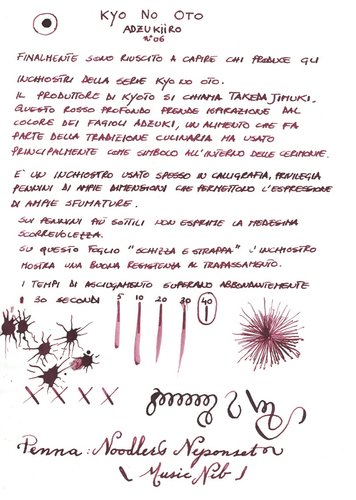 KYO NO OTO
ADZUKIIRO
N°06
FINALMENTE SONO RIUSCITO A CAPIRE CHI PRODUCE GLI
INCHIOSTRI DELLA SERIE KYO NO OTO.
IL PRODUTTORE DI KYOTO SI CHIAMA TAKEDA JIMUKI,
QUESTO ROSSO PROFONDO PRENDE ISPIRAZIONE DAL
COLORE DEI FAGIOLI ADZUKI, UN ALIMENTO CHE FA
PARTE DELLA TRADIZIONE CULINARIA MA USATO
PRINCIPALMENTE COME SIMBOLO ALL'INTERNO DELLE CERIMONIE.
E' UN INCHIOSTRO USATO SPESSO IN CALLIGRAFIA, PRIVILEGIA
PENNINI DI AMPIE DIMENSIONI CHE PERMETTONO L'ESPRESSIONE
DI AMPIE SFUMATURE.
SUI PENNINI PIÙ SOTTILI NON ESPRIME LA MEDESIMA
SCORREVOLEZZA.
SU QUESTO FOGLIO "SCHIZZA E STRAPPA" L'INCHIOSTRO
MOSTRA UNA BUONA RESISTENZA AL TRAPASSAMENTO.
I TEMPI DI ASCIUGAMENTO SUPERANO ABBONDANTEMENTE
I 30 SECONDI
5 10 20 30 40
X X X X
Penna: Noodler's Neponset
( Music Nib )